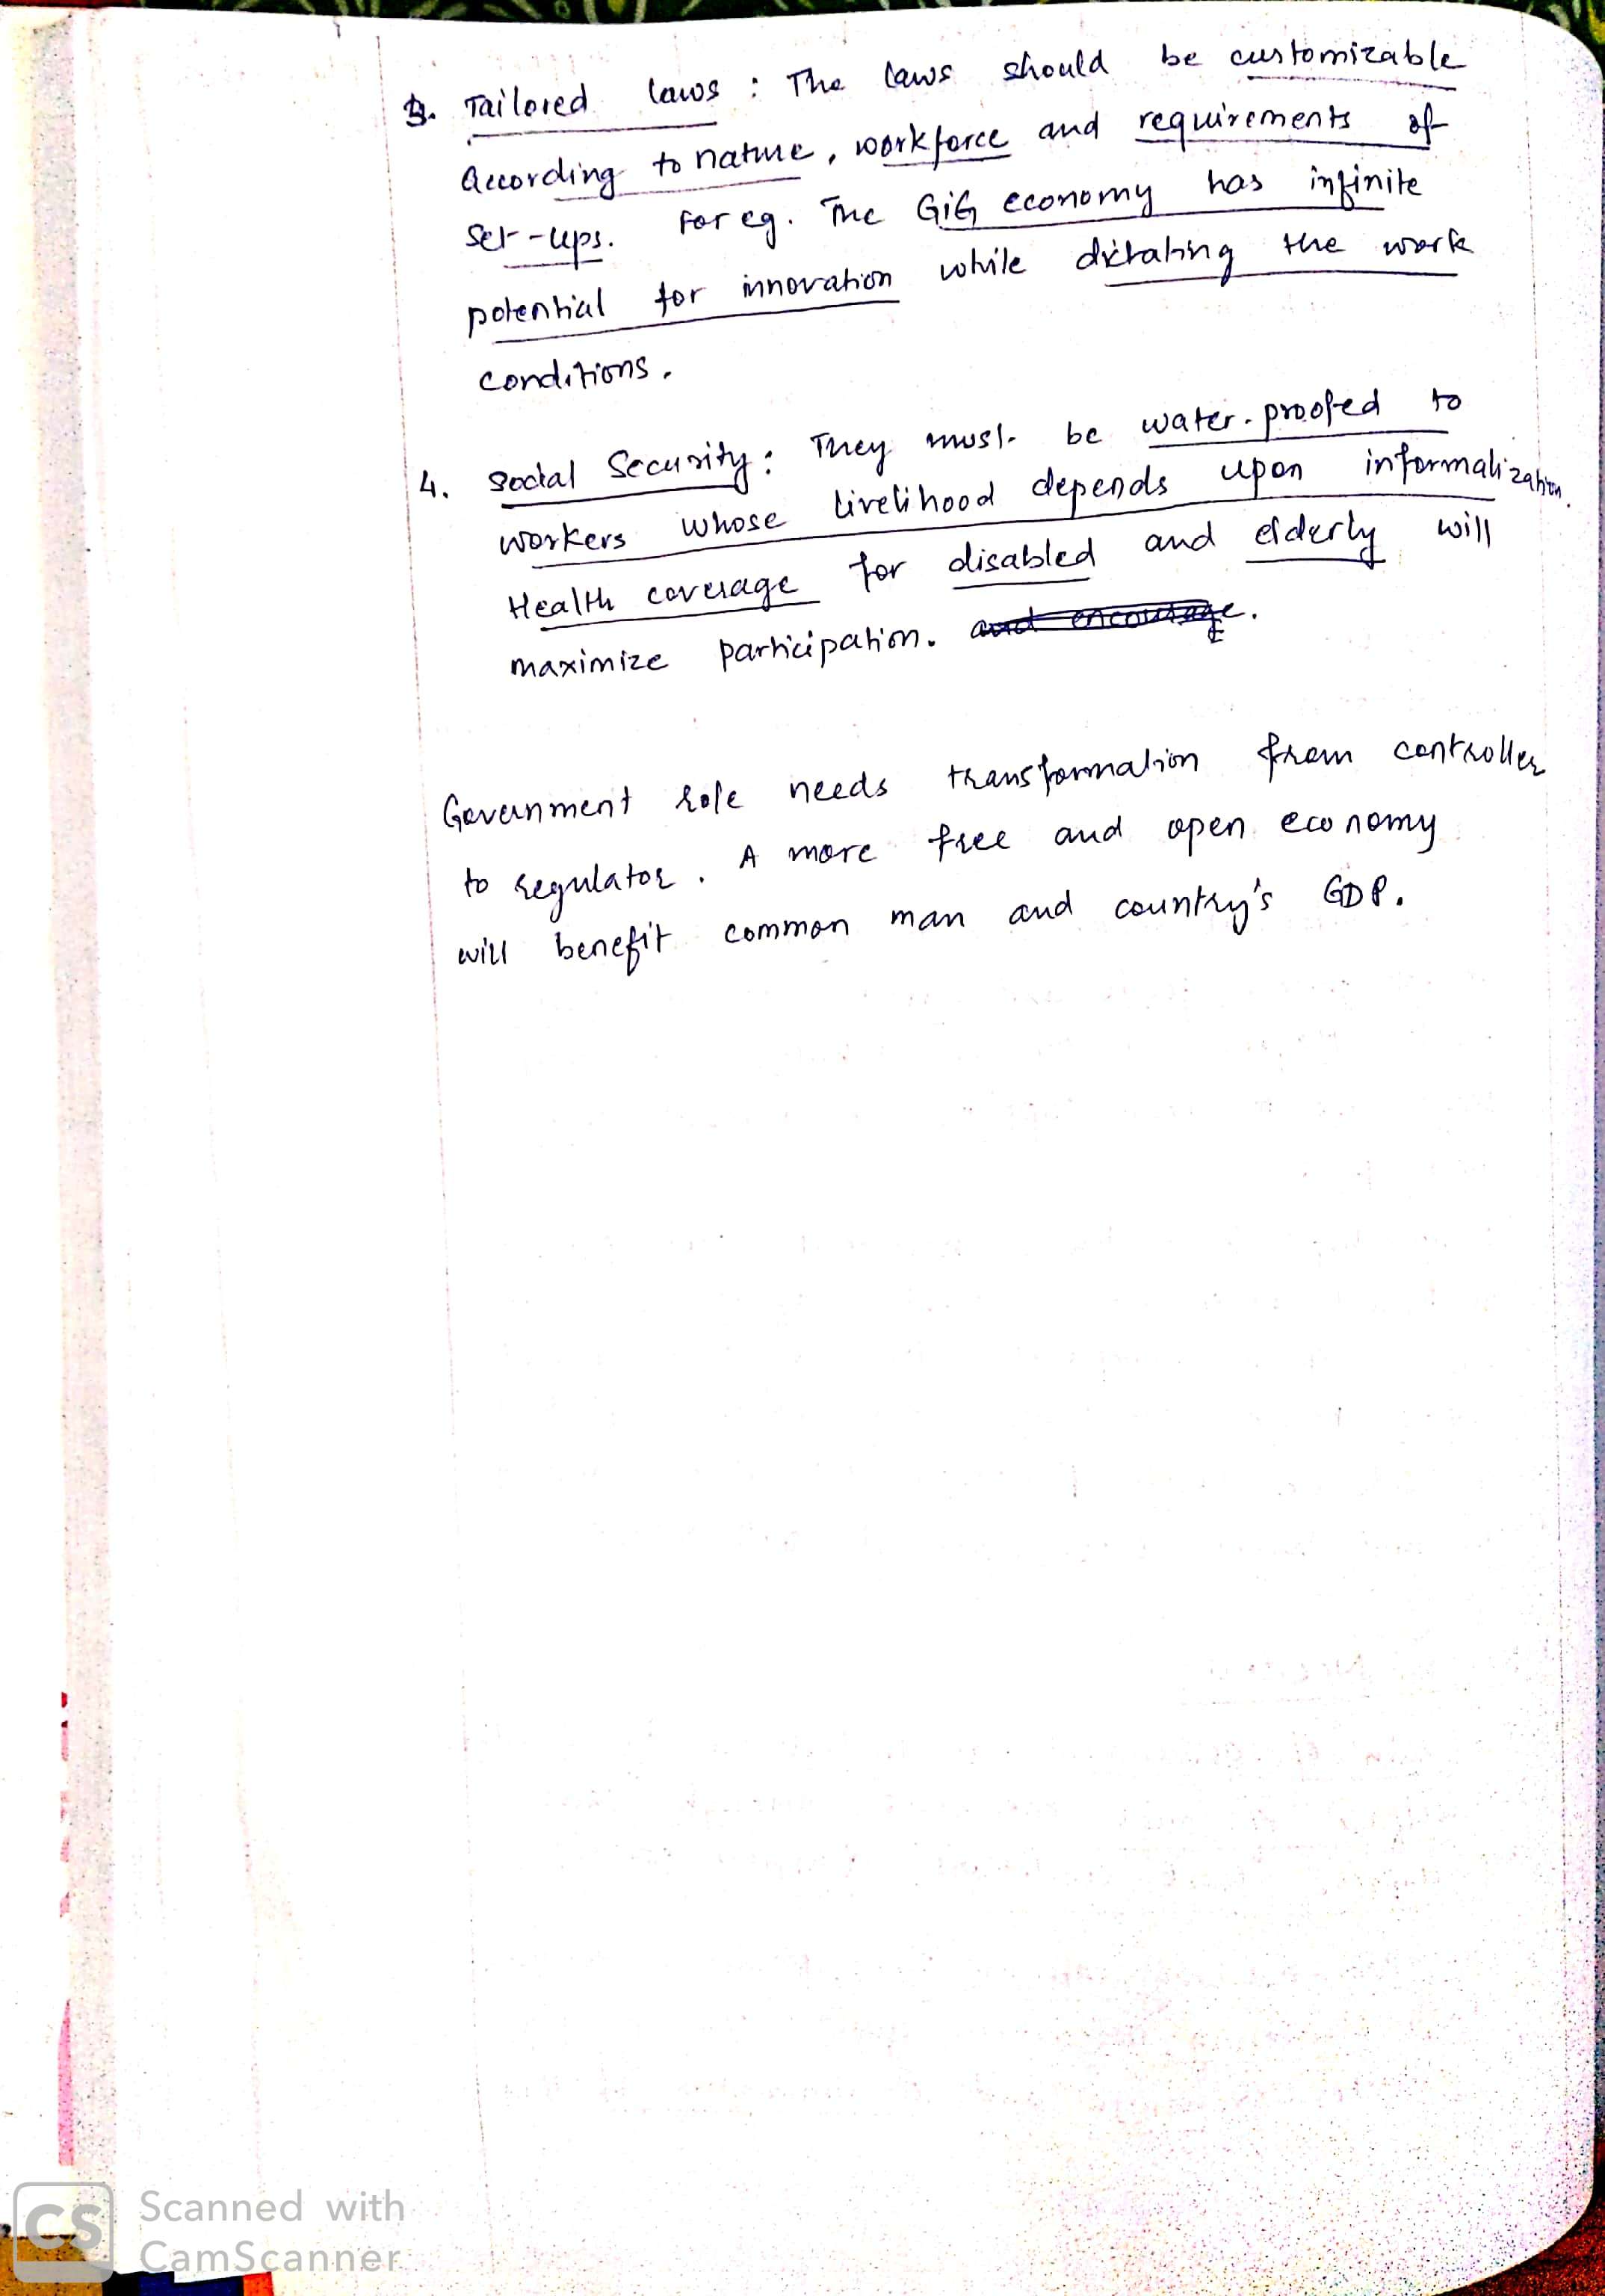 3. Tailored laws : The laws should be customizable
According to nature, workforce and requirements of
set-ups. For eg. The GiG economy has infinite
potential for innovation while dictating the work
conditions.
4. Social Security : They must be water-proofed to
workers whose livelihood depends upon informalization.
Health coverage for disabled and elderly will
maximize participation. and encourage.
Government role needs transformation from controller
to regulator. A more free and open economy
will benefit common man and country's GDP.
CS Scanned with
CamScanner